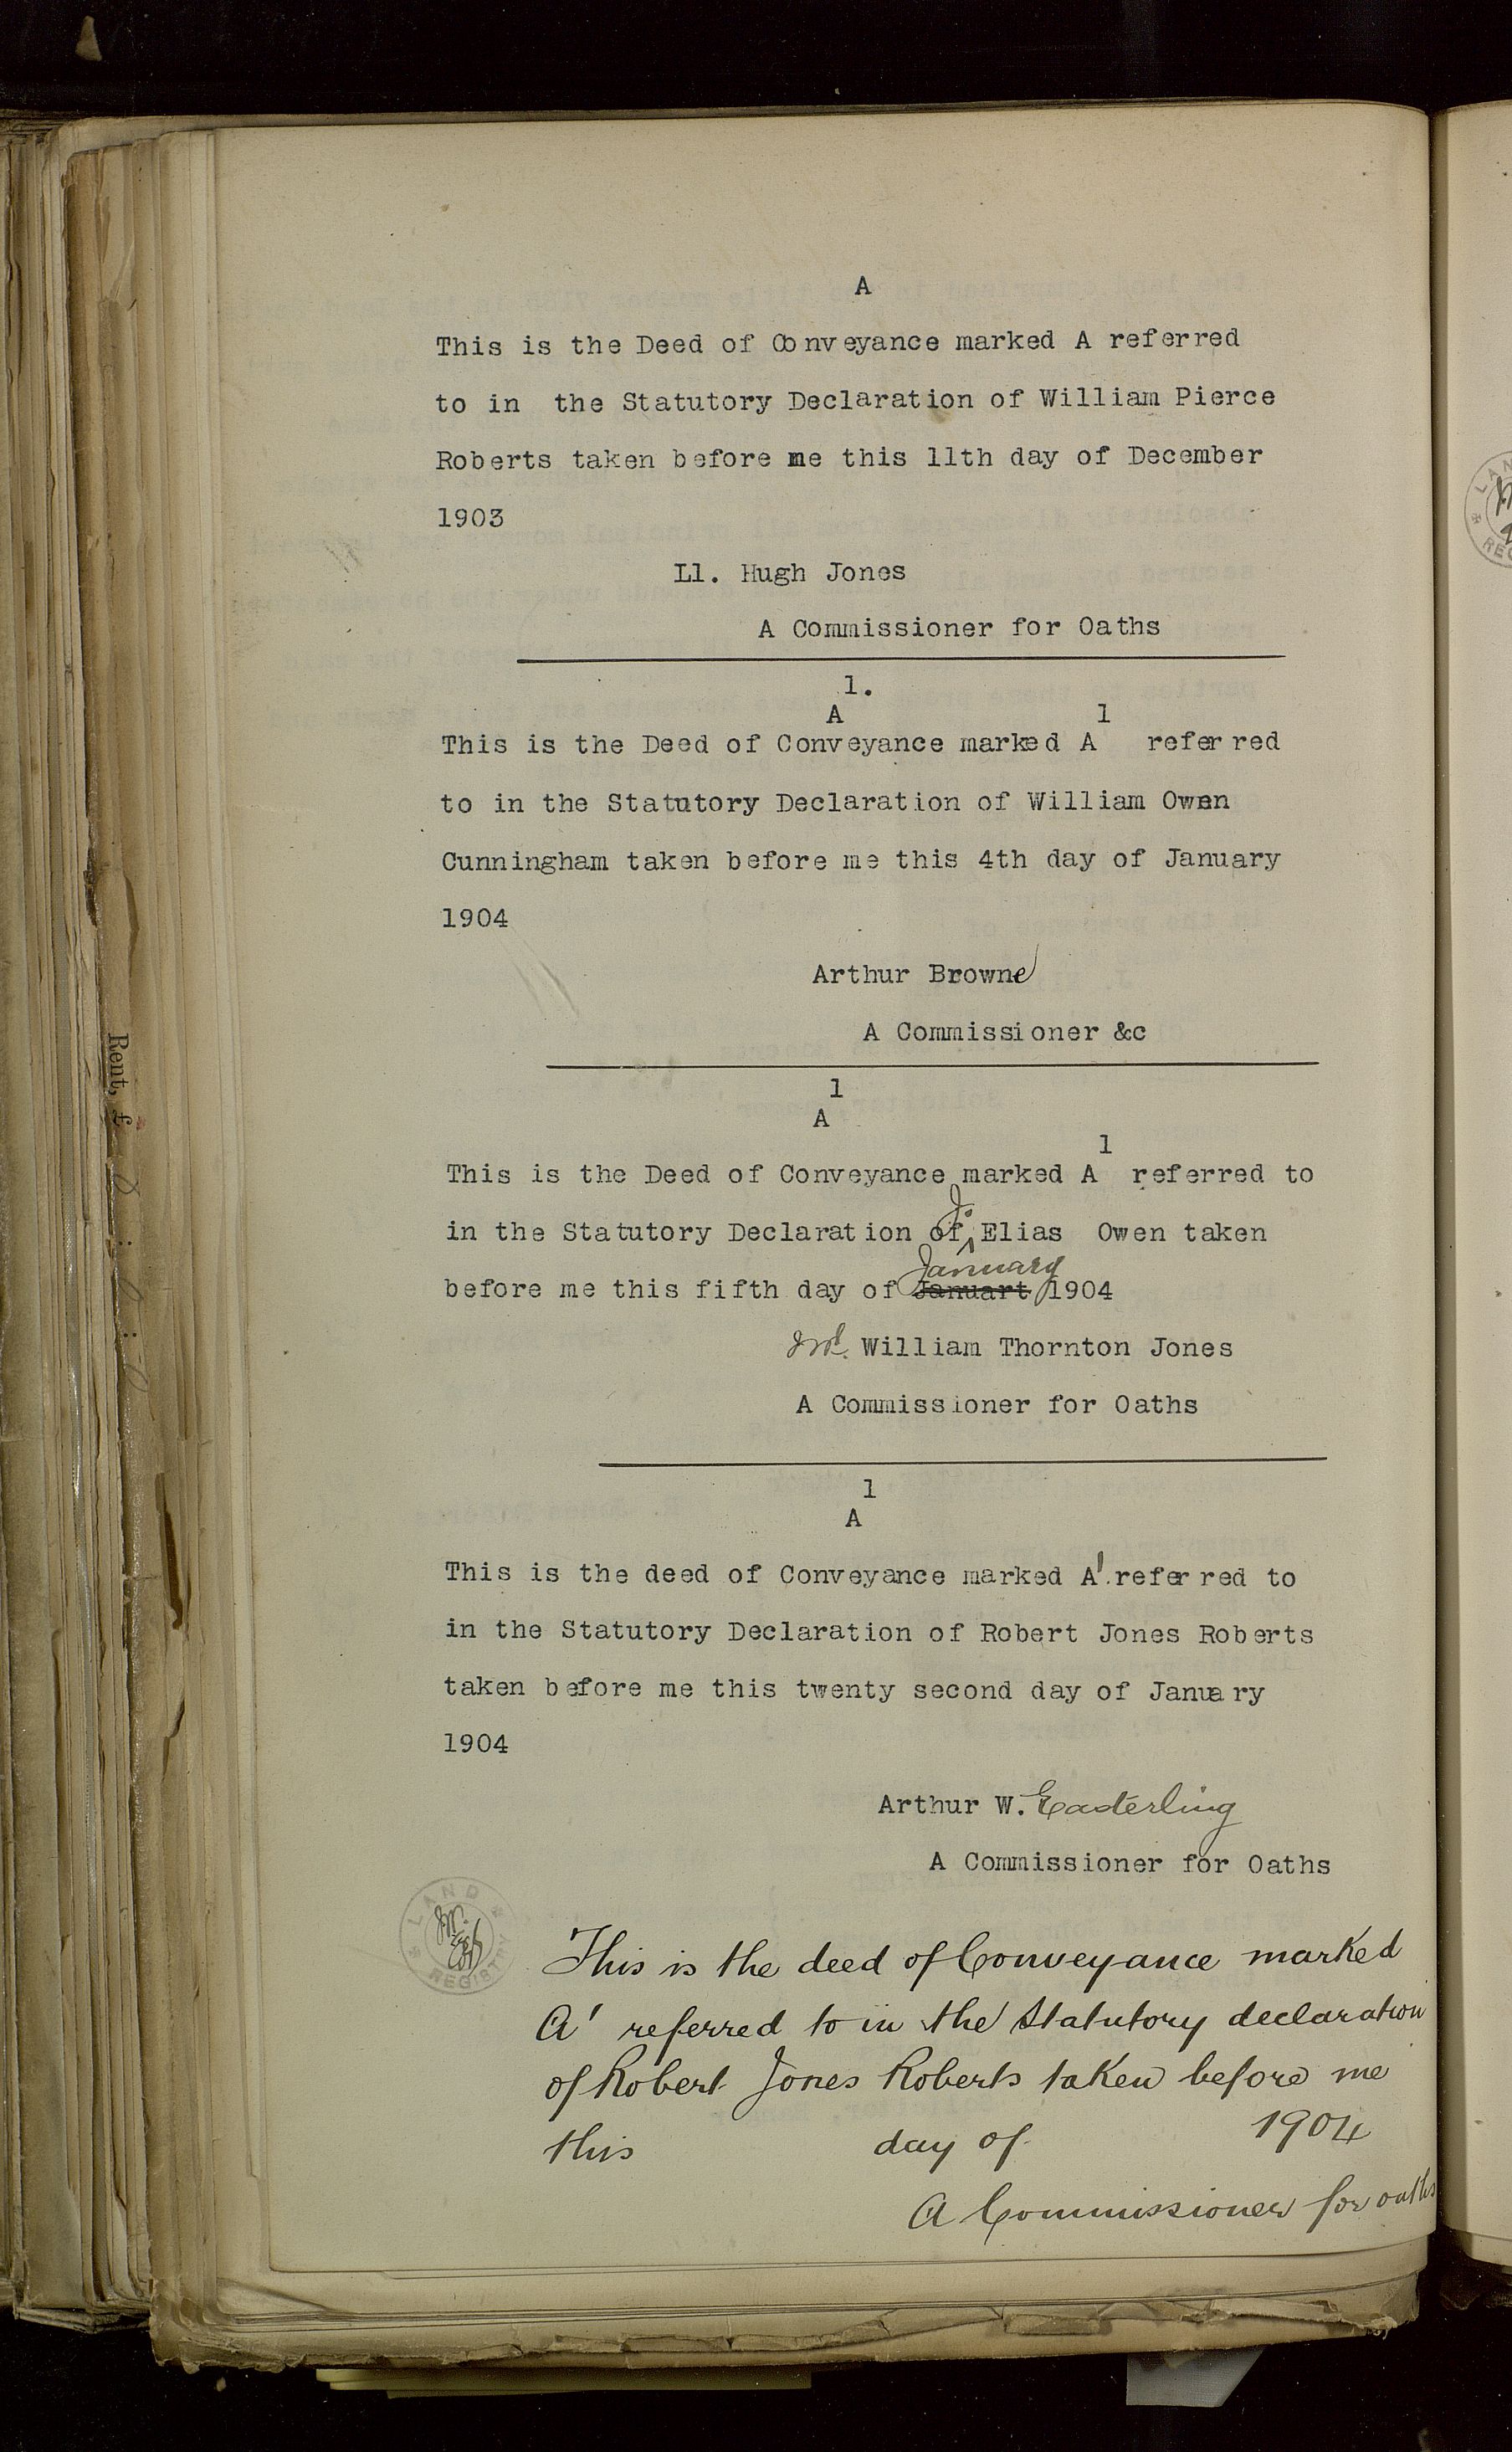 A
This is the Deed of Conveyance marked A referred
to in the Statutory Declaration of William Pierce
Roberts taken before me this 11th day of December
1903
Ll. Hugh Jones
A Commissioner for Oaths
1.
A 1
This is the Deed of Conveyance marked A referred
to in the Statutory Declaration of William Owen
Cunningham taken before me this 4th day of January
1904
Arthur Browne
A Commissioner &c
1
A
1
This is the Deed of Conveyance marked A referred to
J.
in the Statutory Declaration of Elias Owen taken
January
before me this fifth day of Januart 1904
William Thornton Jones
A Commissioner for Oaths
1
A
This is the deed of Conveyance marked A1 referred to
in the Statutory Declaration of Robert Jones Roberts
taken before me this twenty second day of January
1904
Arthur W. Easterling
A Commissioner for Oaths
LAND REGISTRY
This is the deed of Conveyance marked
A1 referred to in the Statutory declaration
of Robert Jones Roberts taken before me
this day of 1904
A Commissioner for oaths
Rent, £